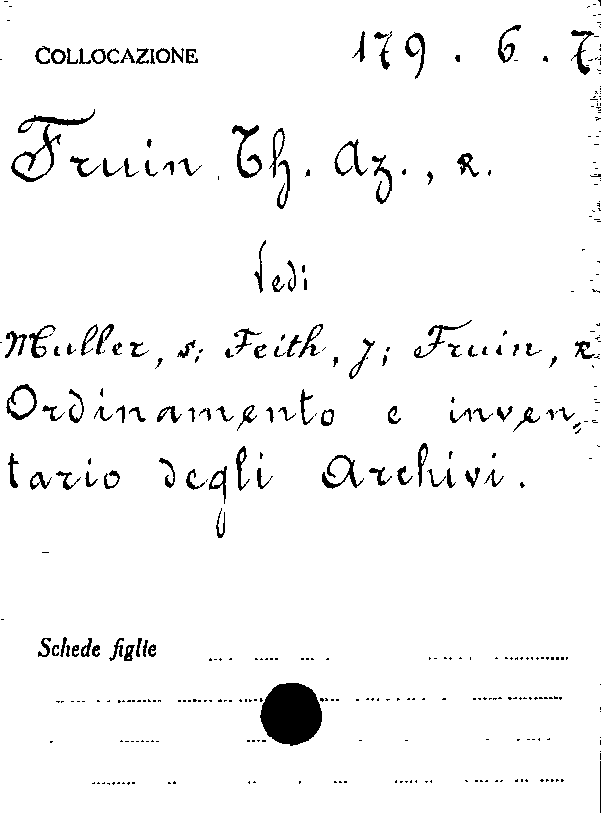 COLLOCAZIONE 179.6.7
Fruin Th. Az., R.
Vedi
Muller, S; Feith, J; Fruin, R
Ordinamento e inven=
tario degli Archivi.
Schede figlie